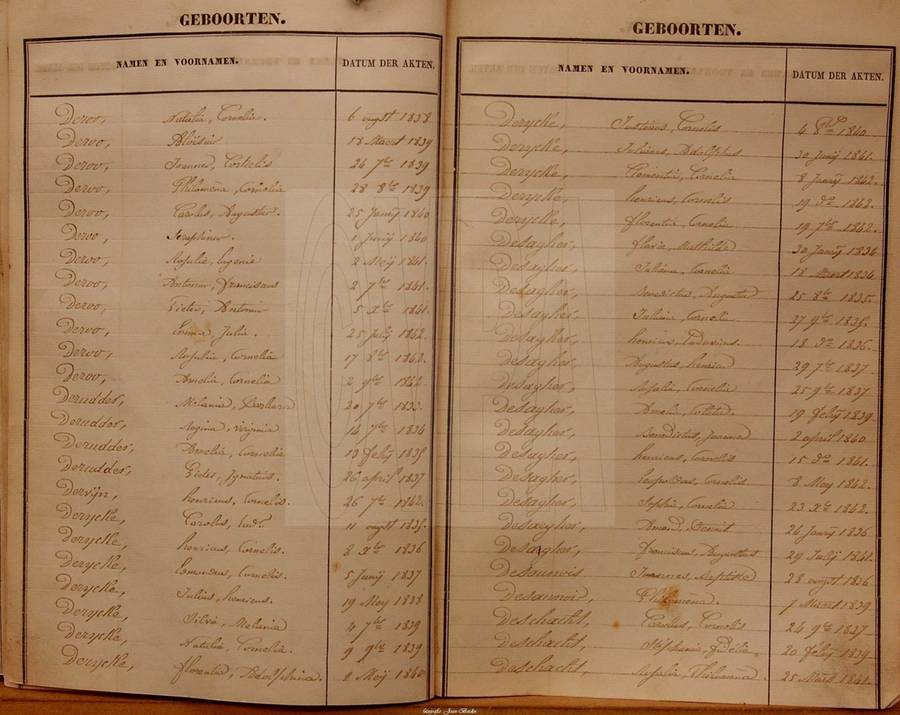 GEBOORTEN.
NAMEN EN VOORNAMEN. DATUM DER AKTEN.
Deroo, Natalia, Cornelia. 6 augst 1838
Deroo, 18 Maert 1839
Deroo, Joannes, Cornelis 24 7bre 1839
Deroo, Philomena, Cornelia 28 8bre 1839
Deroo, Carolus, Augustus. 25 Januij 1840
Deroo, Seraphinus. 1 Junij 1840
Deroo, Rosalie, Eugenia 2 Meij 1841.
Deroo, Antonius, Franciscus 2 7bre 1841.
Deroo, Pieter, Antonius 5 xbre 1841.
Deroo, Emma, Julie. 25 July 1842.
Deroo, Rosalia, Cornelia 17 8bre 1842.
Deroo, Amelia, Cornelia 2 9bre 1842
Derudder, Melania, Barbara 20 7bre 1833.
Derudder, Regina, Virginia 14 7bre 1834
Derudder, Amelia, Cornelia 13 febij 1835
Derudder, Pieter, Ignatius. 26 april 1837
Derijn, henricus, Cornelis. 26 7bre 1842.
Derycke, Carolus, Lud. 11 augst 1835.
Derycke, henricus, Cornelis. 8 xbre 1836
Derycke, Edmondus, Cornelis. 5 Junij 1837
Derycke, Julius, henricus. 19 Mey 1838
Derycke, Silvie, Melania 4 7bre 1839
Derycke, Natalia, Cornelia. 9 9bre 1839
Derycke, florentia, Adolphina. 2 Meij 1840
GEBOORTEN.
NAMEN EN VOORNAMEN. DATUM DER AKTEN.
Derycke, Justinus, Cornelis 4 8bre 1840
Derycke, Julianus, Adolphus 30 Junij 1841.
Derycke, Clementia, Cornelia 8 Januij 1842.
Derycke, henricus, Cornelis 19 do 1842.
Derycke, florentia, Cornelia 19 7bre 1842.
Desagher, flavie, Mathilde 30 Januij 1834
Desagher, Juliana, Cornelia 18 Maert 1834
Desagher, Benedictus, Augustus 25 8bre 1835.
Desagher, Juliana, Corneli 27 9bre 1835.
Desagher, henricus, Ludovicus. 18 do 1836.
Desagher, Augustus, henricus 29 7bre 1837.
Desagher, Rosalia, Cornelia 25 9bre 1837
Desagher, Amelia, 19 febij 1839
Desagher, Benedictus, Joannes 2 april 1840
Desagher, henricus, Cornelis 15 do 1841.
Desagher, Leopoldus, Cornelis 8 Mey 1842.
Desagher, Sophia, Cornelia 23 xbre 1842.
Desaegher, Amand, 26 Januij 1836
Desagher, Franciscus, Augustus 29 July 1841.
Desaunois Joannes, Baptiste 28 augst 1836
Desaunois, Philomena. 7 Maert 1839
Deschacht, Carolus, Cornelis 24 9bre 1837
Deschacht, Stephanie, Fidelia 20 febij 1839
Deschacht, Rosalia, Philomena. 25 Maert 1841.